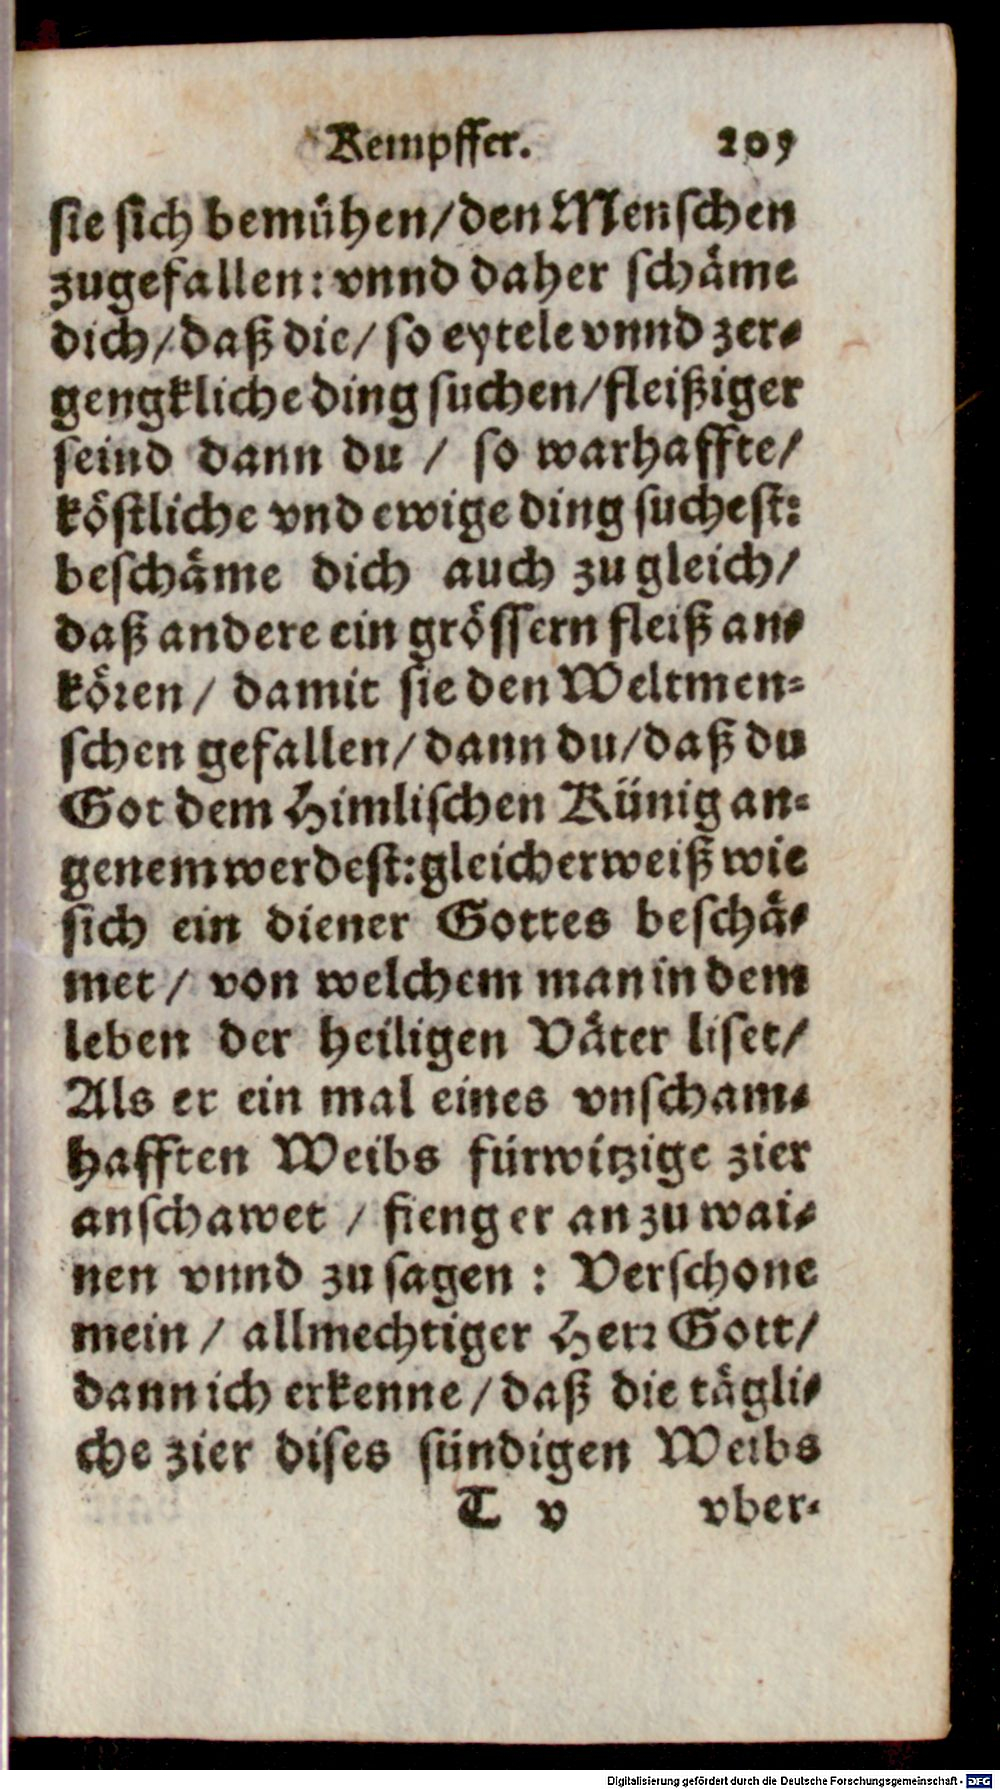 Kempffer. 209
sie sich bemühen/den Menschen
zugefallen: vnnd daher schäme
dich/daß die/ so eytele vnnd zer-
gengkliche ding suchen/fleißiger
seind dann du / so warhaffte/
köstliche vnd ewige ding suchest:
beschäme dich auch zu gleich/
daß andere ein grössern fleiß an-
kören/ damit sie den Weltmen-
schen gefallen/dann du/daß du
Got dem Himlischen Künig an-
genem werdest: gleicherweiß wie
sich ein diener Gottes beschä-
met/ von welchem man in dem
leben der heiligen Väter liset/
Als er ein mal eines vnscham-
hafften Weibs fürwitzige zier
anschawet / fieng er an zu wai-
nen vnnd zu sagen : Verschone
mein / allmechtiger Herr Gott/
dann ich erkenne/daß die tägli-
che zier dises sündigen Weibs
T v vber-
Digitalisierung gefördert durch die Deutsche Forschungsgemeinschaft - DFG